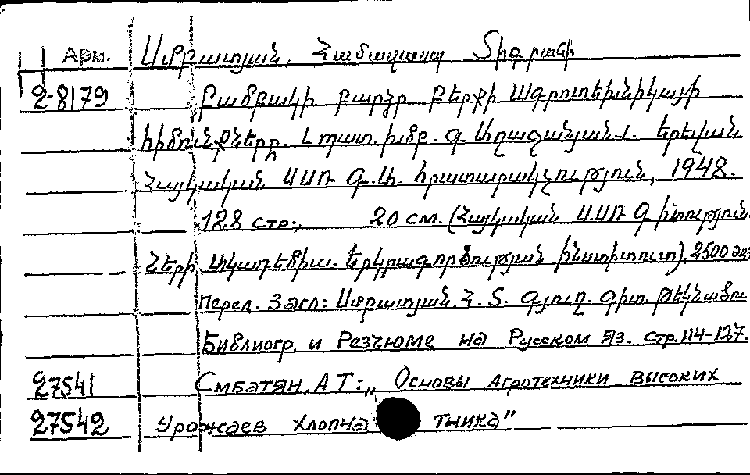 Арм. Սմբատյան, Համազասպ Տիգրանի
2-8179 Բամբակի բարձր բերքի ագրոտեխնիկայի
հիմունքները. Պատ. խմբ. Գ. Աղաջանյան. Երևան
Հայկական ՍՍՌ Գ.Ա. հրատարակչություն, 1948.
128 стр., 20 см. (Հայկական ՍՍՌ Գիտություն
ների Ակադեմիա. Երկրագործության ինստիտուտ). 2500 эк
Перед. Загл: Սմբատյան Հ. Տ. գյուղ. գիտ. թեկնածու
Библиогр. и Резюме на Русском яз. стр. 114-127.
27541 Смбатян, А Т: „ Основы Агротехники высоких
27542 Урожаев хлопча тника"